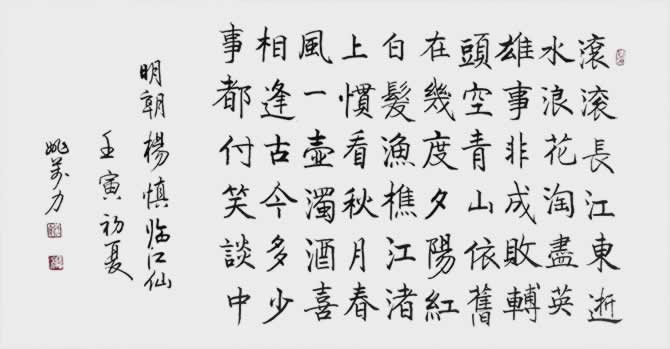 滾滾長江東逝
水浪花淘盡英
雄事非成敗轉
頭空青山依舊
在幾度夕陽紅
白髮漁樵江渚
上慣看秋月春
風一壺濁酒喜
相逢古今多少
事都付笑談中
明朝楊慎临江仙
壬寅初夏
姚萬力